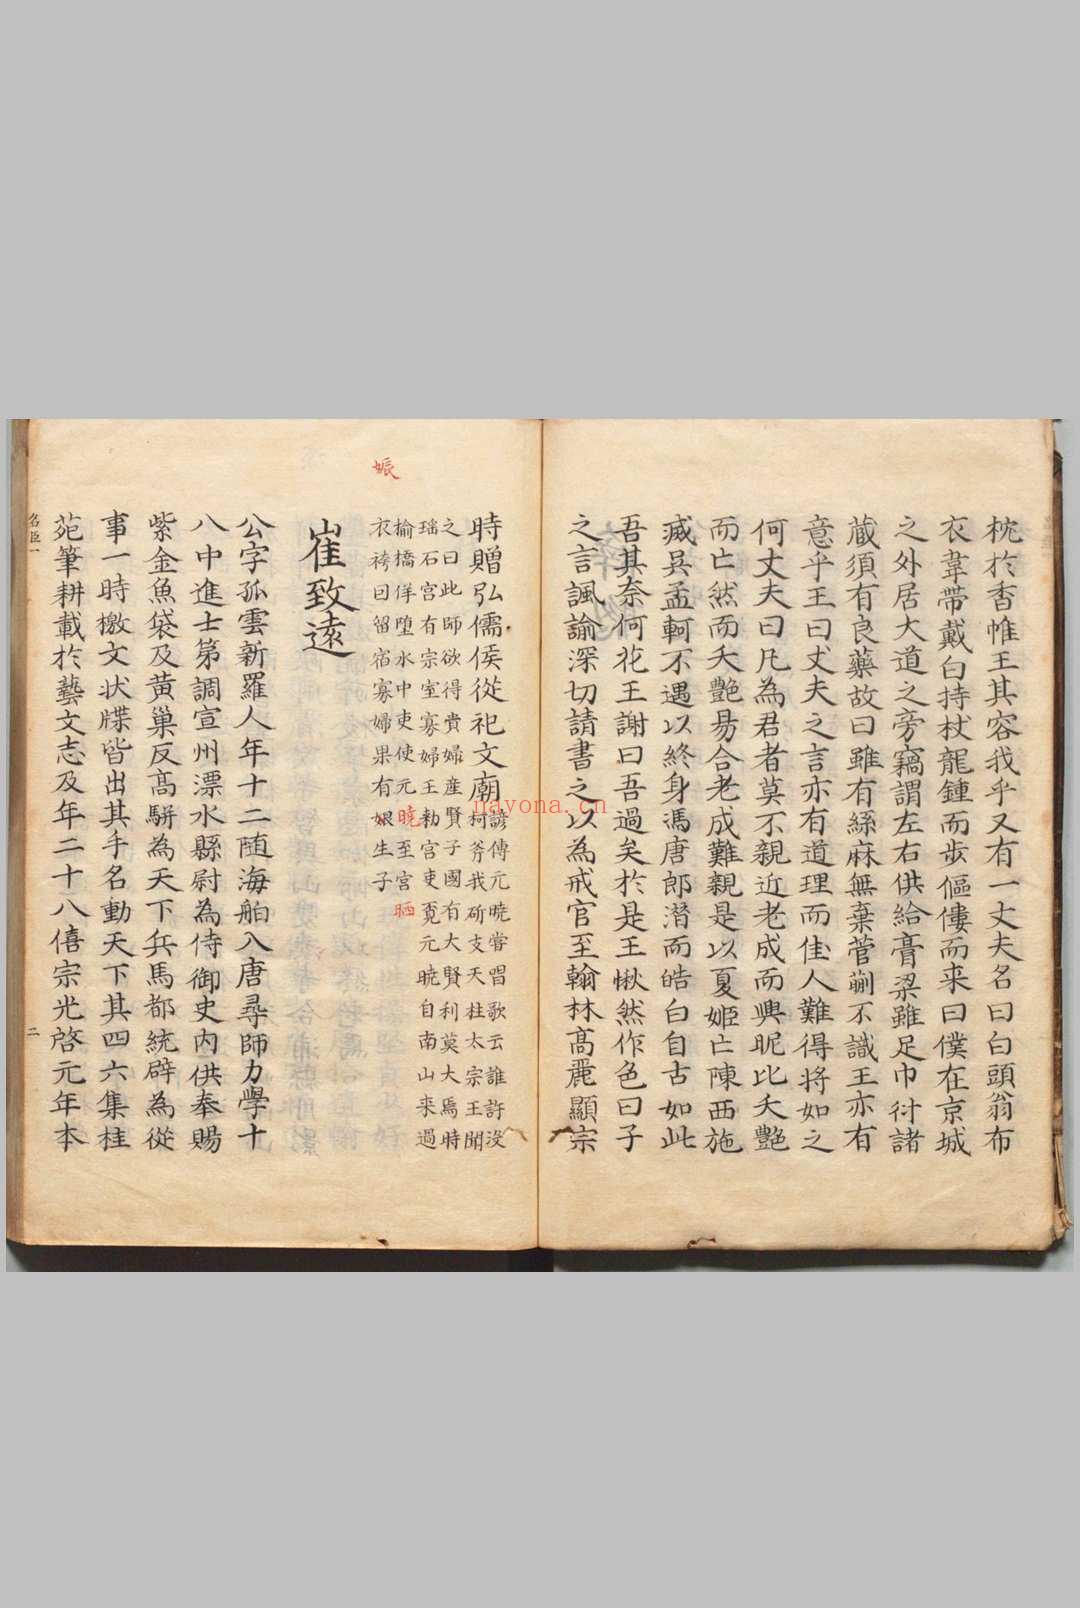 枕於香帷王其容我乎又有一丈夫名曰白頭翁布
衣韋帶戴白持杖龍鍾而步傴僂而来曰僕在京城
之外居大道之旁竊謂左右供給膏梁雖足巾衍諸
蔵須有良藥故曰雖有絲麻無棄菅蒯不識王亦有
意乎王曰丈夫之言亦有道理而佳人難得將如之
何丈夫曰凡為君者莫不親近老成而興昵比夭艶
而亡然而夭艶昜合老成難親是以夏姬亡陳西施
烕吳孟軻不遇以終身馮唐郎潜而皓白自古如此
吾其奈何花王謝曰吾過矣於是王愀然作色曰子
之言諷諭深切請書之以為戒官至翰林髙麗顯宗
時贈弘儒侯從祀文廟
諺傳元曉嘗唱歌云誰許没
柯斧我斫支天柱太宗王聞
之曰此師欲得貴婦産賢子國有大賢利莫大焉時
瑶石宫有宗室寡婦王勑宫吏覔元曉自南山来過
榆橋佯墮水中吏使元曉至宫晒
衣袴曰留宿寡婦果有娠生子
娠
崔致遠
公字孤雲新羅人年十二随海舶入唐尋師力學十
八中進士第調宣州漂水縣尉為侍御史内供奉賜
紫金魚袋及黄巢反髙駢為天下兵馬都統辟為從
事一時檄文状牒皆出其手名動天下其四六集桂
苑筆耕載於藝文志及年二十八僖宗光啓元年本
名臣一
二
nayona.cn